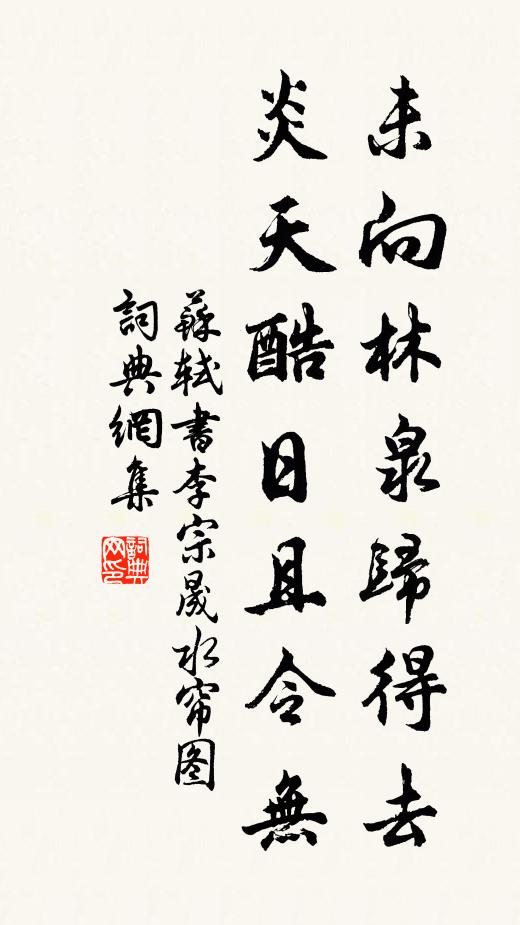 未向林泉歸得去
炎天酷日且令無
蘇軾書李宗晟水帘图
詞典網集
詞典网印